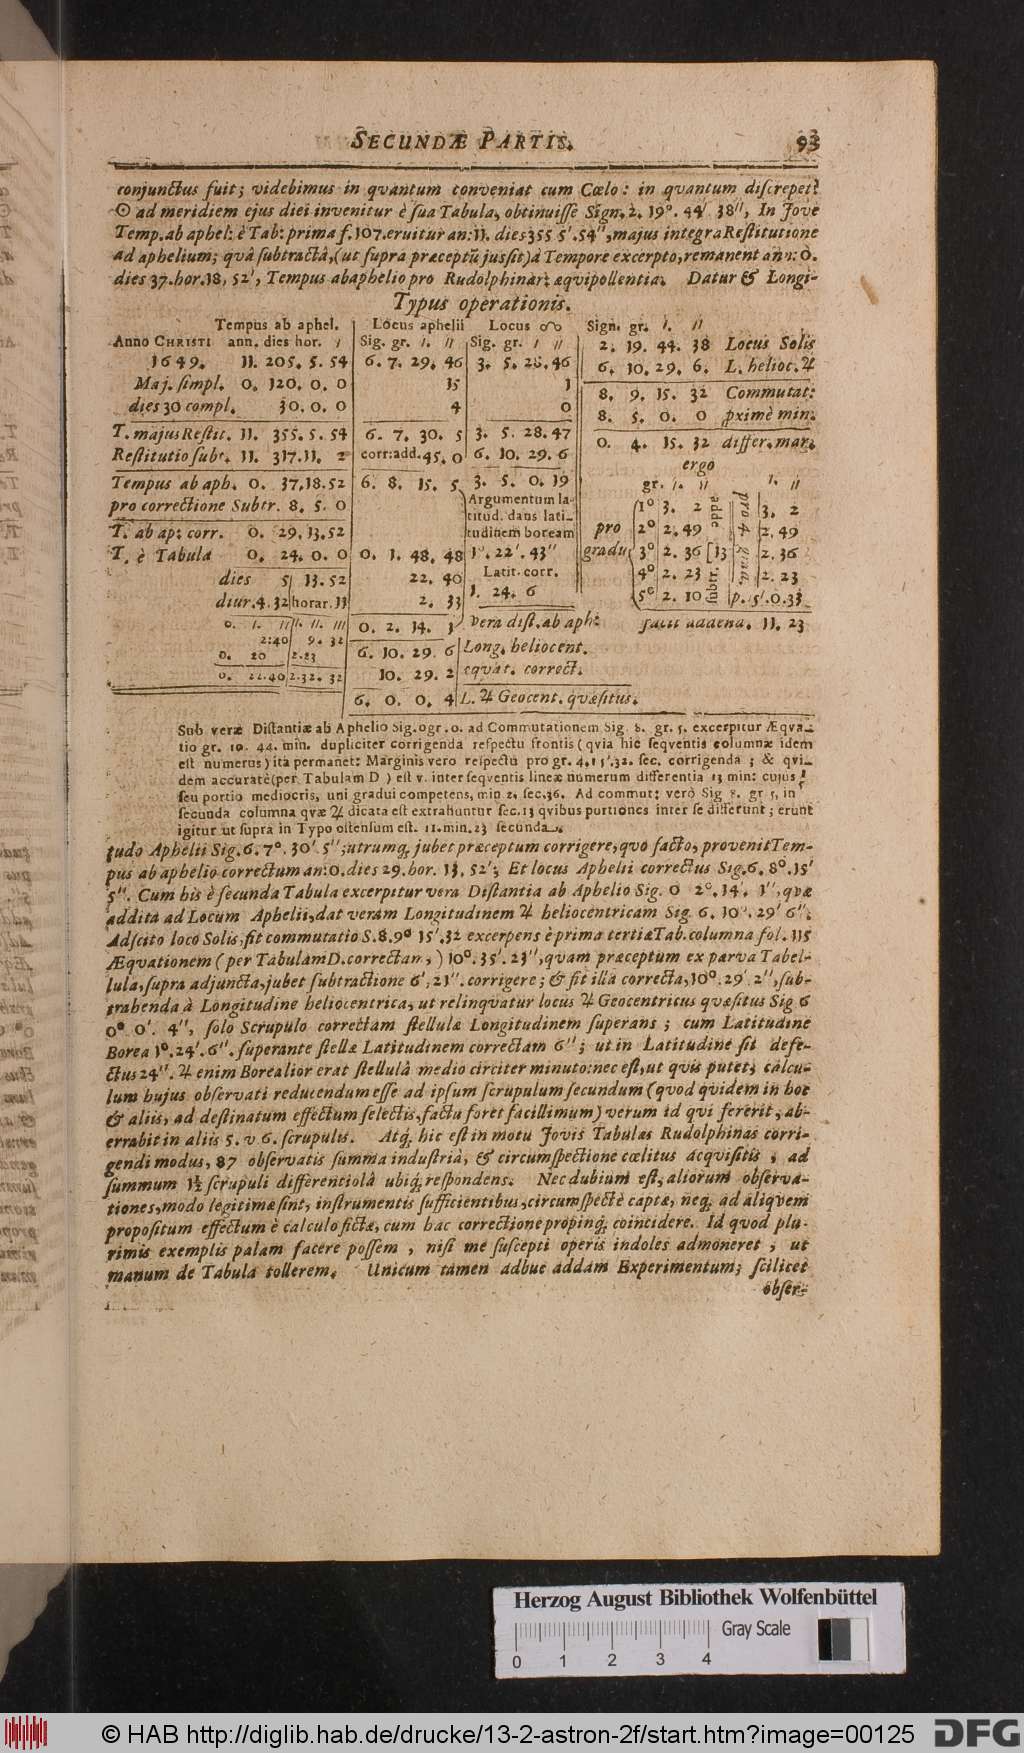 SECUNDÆ PARTIS. 93
conjunctus fuit; videbimus in qvantum conveniat cum Cœlo: in qvantum discrepet?
☉ ad meridiem ejus diei invenitur è sua Tabula, obtinuisse Sign. 2. 19°. 44' 38", In Jove
Temp. ab aphel: è Tab: prima f. 107. eruitur an: 11. dies 355 5'. 54", majus integra Restitutione
ad aphelium; quâ subtractâ, (ut supra præceptũ jussit) à Tempore excerpto, remanent ann: 0.
dies 37. hor. 18, 52', Tempus ab aphelio pro Rudolphinar: æqvipollentia. Datur & Longi-
Typus operationis.
Tempus ab aphel. Locus aphelii Locus ☊ Sign. gr. ı. ıı
Anno CHRISTI ann. dies hor. ı Sig. gr. ı. ıı Sig. gr. ı ıı 2. 19. 44. 38 Locus Solis
1649. 11. 205. 5. 54 6. 7. 29. 46 3. 5. 28. 46 6. 10. 29. 6. L. helioc. ♃
Maj. simpl. 0. 120. 0. 0 15 1 8. 9. 15. 32 Commutat:
dies 30 compl. 30. 0. 0 4 0 8. 5. 0. 0 pximè min.
T. majus Restit. 11. 355. 5. 54 6. 7. 30. 5 3. 5. 28. 47 0. 4. 15. 32 differ. mar.
Restitutio subt. 11. 317. 11. 2 corr: add. 45. 0 6. 10. 29. 6 ergo
Tempus ab aph. 0. 37. 18. 52 6. 8. 15. 5 3. 5. 0. 19 gr. ı. ıı ı. ıı
pro correctione Subtr. 8. 5. 0 Argumentum la- 1° 3. 2 adde pro 4 grad. 3. 2
T. ab ap: corr. 0. 29. 13. 52 titud. dans lati- tudinem boream pro 2° 2. 49 2. 49
T. è Tabula 0. 24. 0. 0 0. 1. 48. 48 1°. 22'. 43" gradu 3° 2. 36 [13 2. 36
dies 5 13. 52 22. 40 Latit. corr. 4° 2. 23 subtr. 2. 23
diur. 4. 32 horar. 11 2. 33 1. 24. 6 5° 2. 10 p. 5'. 0. 33
0. ı. ıı ıı. ııı 0. 2. 14. 1 vera dist. ab aph: facit addend. 11. 23
2: 40 9. 32 6. 10. 29. 6 Long. heliocent.
0. 20 2. 23 10. 29. 2 eqvat. correct.
0. 22. 40 2. 32. 32
6. 0. 0. 4 L. ♃ Geocent. qvæsitus.
Sub veræ Distantiæ ab Aphelio Sig. 0 gr. 0. ad Commutationem Sig. 8. gr. 5. excerpitur Æqva-
tio gr. 10. 44. min. dupliciter corrigenda respectu frontis (qvia hic seqventis columnæ idem
est numerus) ita permanet: Marginis vero respectu pro gr. 4. 15'. 32. sec. corrigenda; & qvi-
dem accuratè (per Tabulam D) est v. inter seqventis lineæ numerum differentia 13 min: cujus 1/5
seu portio mediocris, uni gradui competens, min 2. sec. 36. Ad commut: verò Sig 8. gr 5, in
secunda columna qvæ ♃ dicata est extrahuntur sec. 13 qvibus portiones inter se differunt; erunt
igitur ut supra in Typo ostensum est. 11. min. 23 secunda.
tudo Aphelii Sig. 6. 7°. 30'. 5"; utrumq; jubet præceptum corrigere, quo facto, provenit Tem-
pus ab aphelio correctum an: 0. dies 29. hor. 13, 52'; Et locus Aphelii correctus Sig. 6. 8°. 15'
5". Cum his è secunda Tabula excerpitur vera Distantia ab Aphelio Sig. 0 2°. 14'. 1", qvæ
addita ad Locum Aphelii, dat veram Longitudinem ♃ heliocentricam Sig. 6. 10°. 29' 6".
Adscito loco Solis, fit commutatio S. 8. 9° 15'. 32 excerpens è prima tertiæ Tab. columna fol. 115
Æqvationem (per Tabulam D. correctam,) 10°. 35'. 23", quam præceptum ex parva Tabel-
lula, supra adjuncta, jubet subtractione 6', 21". corrigere; & fit illa correcta, 10°. 29'. 2", sub-
trahenda à Longitudine heliocentrica, ut relinqvatur locus ♃ Geocentricus quæsitus Sig 6
0° 0'. 4", solo Scrupulo correctam stellulæ Longitudinem superans; cum Latitudine
Borea 1°. 24'. 6". superante stellæ Latitudinem correctam 6"; ut in Latitudine sit defe-
ctus 24". ♃ enim Borealior erat stellulâ medio circiter minuto: nec est, ut qvis putet; calcu-
lum hujus observati reducendum esse ad ipsum scrupulum secundum (quod quidem in hoc
& aliis, ad destinatum effectum selectis, factu foret facillimum) verum id qui fererit, ab-
errabit in aliis 5. v 6. scrupulis. Atq; hic est in motu Jovis Tabulas Rudolphinas corri-
gendi modus, 87 observatis summa industriâ, & circumspectione cœlitus acqvisitis, ad
summum 1½ scrupuli differentiolâ ubiq; respondens. Nec dubium est, aliorum observa-
tiones, modo legitimæ sint, instrumentis sufficientibus, circumspectè captæ, neq; ad aliqvem
propositum effectum è calculo fictæ, cum hac correctione propinq; coincidere. Id quod plu-
rimis exemplis palam facere possem, nisi me suscepti operis indoles admoneret, ut
manum de Tabula tollerem. Unicum tamen adhuc addam Experimentum; scilicet
obser-
Herzog August Bibliothek Wolfenbüttel
Gray Scale
0 1 2 3 4
© HAB http://diglib.hab.de/drucke/13-2-astron-2f/start.htm?image=00125 DFG